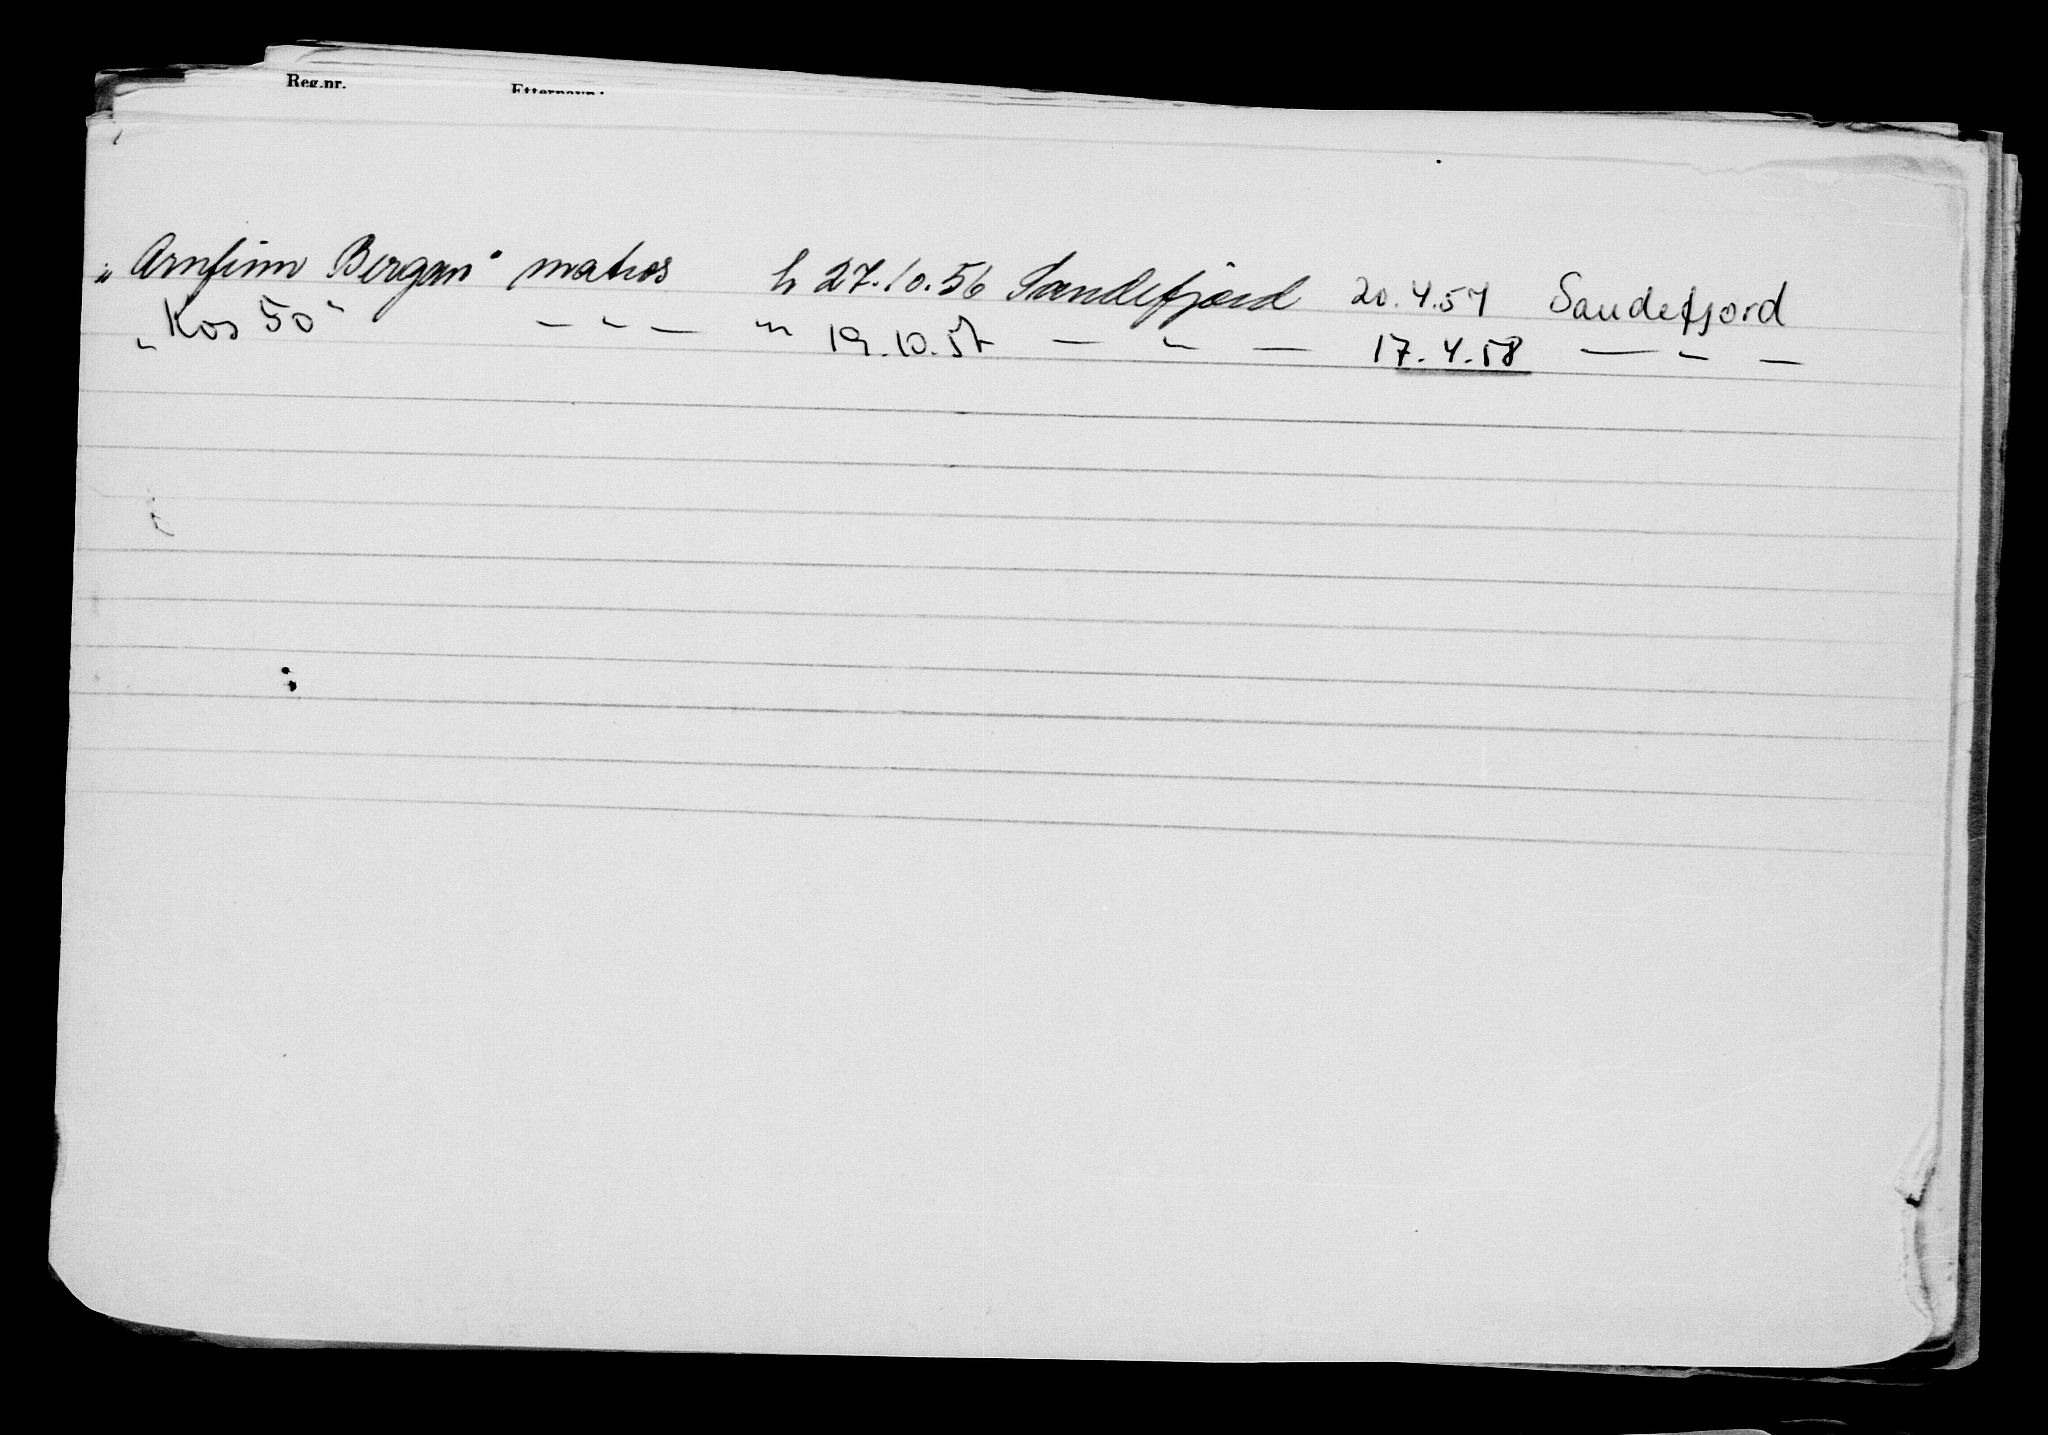 Reg.nr. Etternavn:
„Arnfinn Bergan" matros h 27.10.56 Sandefjord 20.4.57 Sandefjord
„Kos 50" — " — " 19.10.57 — " — 17.4.58 — " —